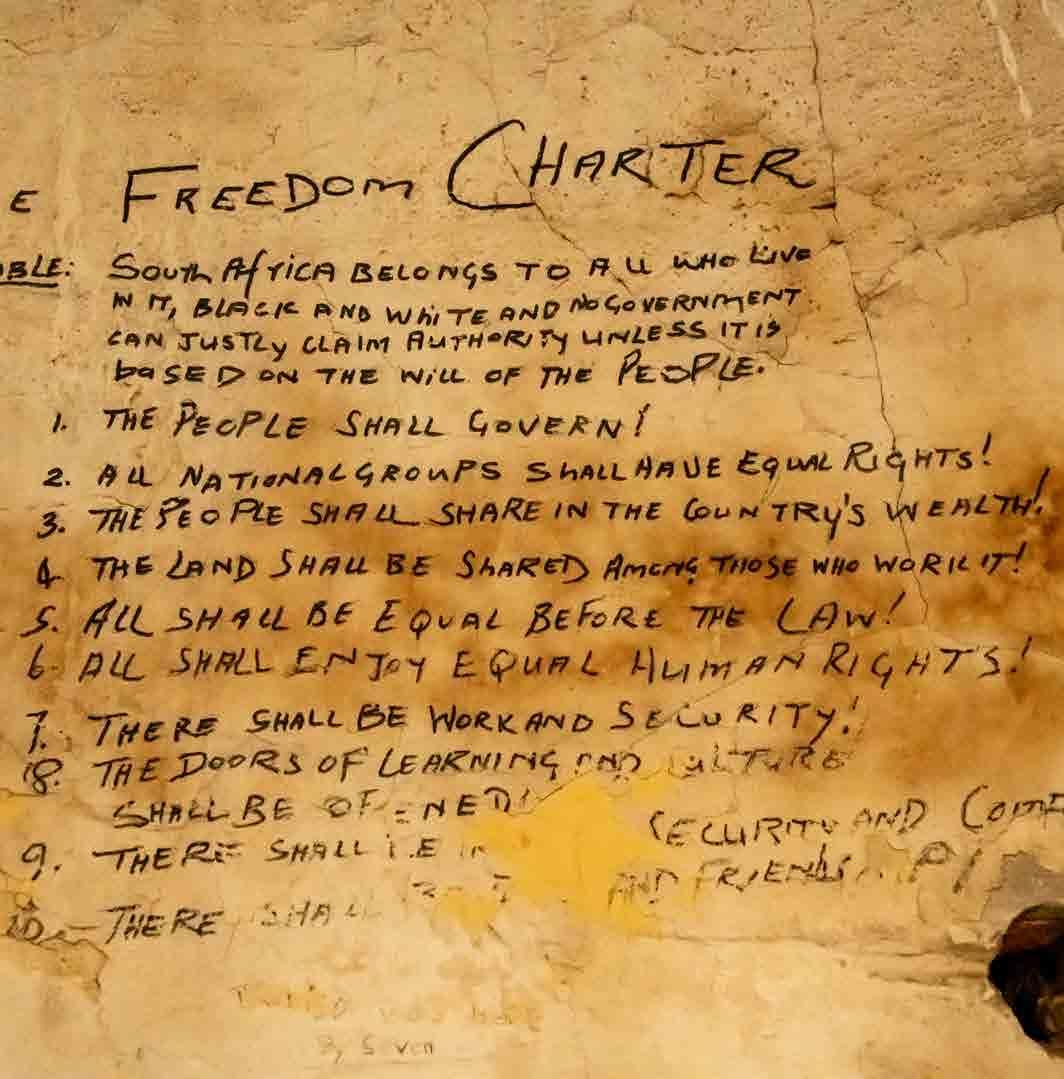 E FREEDOM CHARTER
BLE: South Africa BELONGS TO ALL WHO Live
IN IT, BLACK AND WHiTE AND NO GOVERNMENT
CAN JUSTLY CLAIM AUTHORITY UNLESS IT IS
baSED ON THE WiLL OF THE PEOPLE.
1. THE PEOPLE SHALL GOVERN!
2. ALL NATIONAL GROUPS ShALL HAVE EQUAL RIGHTS!
3. THE PEOPLE SHALL SHARE IN THE COUNTRY'S WEALTH!
4. THE LAND SHALL BE ShARED AMONG THOSE WHO WORK IT!
5. ALL SHALL BE EQUAL BEFORE THE LAW!
6. ALL SHALL ENJOY EQUAL HUMAN RIGHTS!
7. THERE SHALL BE WORK AND SECURITY!
8. THE DOORS OF LEARNING AND CULTURE
SHALL BE OPENED!
9. THERE SHALL BE SECURITY AND COMF
10. THERE SHALL AND FRIENDSHIP